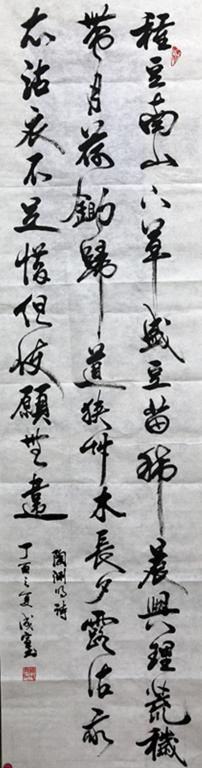 種豆南山下草盛豆苗稀晨興理荒穢
帶月荷鋤歸道狹艸木長夕露沾我
衣沾衣不足惜但使願無違
陶淵明詩
丁酉之夏成